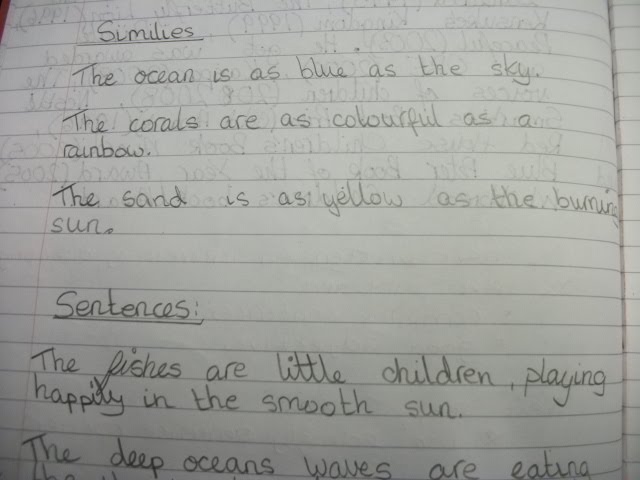 Similies
The ocean is as blue as the sky.
The corals are as colourful as a
rainbow.
The sand is as yellow as the burning
sun.
Sentences:
The fishes are little children, playing
happily in the smooth sun.
The deep oceans waves are eating